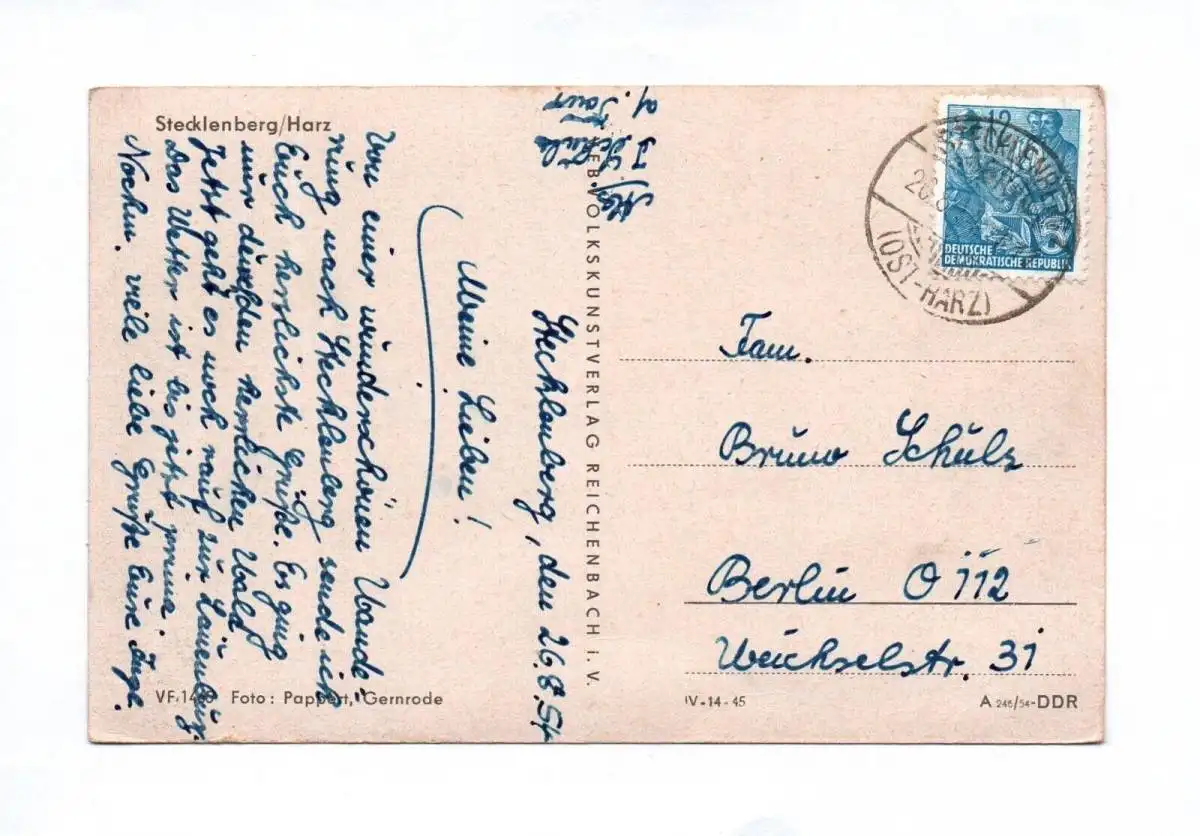 Stecklenberg/Harz
Stecklenberg, den 26.8.54
Meine Lieben!
Von einer wunderschönen Wande-
rung nach Stecklenberg sende ich
Euch herzlichste Grüße. Es ging
nur durch den herrlichen Wald
Jetzt geht es noch rauf zur Lauenburg.
Das Wetter ist bis jetzt prima.
Nochm. viele liebe Grüße Eure Inge.
Abs.
I. Schulz
VOLKSKUNSTVERLAG REICHENBACH i. V.
VF 14 Foto: Pappert, Gernrode
12
DEUTSCHE
DEMOKRATISCHE REPUBLIK
26.8
(OST-HARZ)
Fam.
Bruno Schulz
Berlin O 112
Weichselstr. 31
IV-14-45
A 246/54-DDR